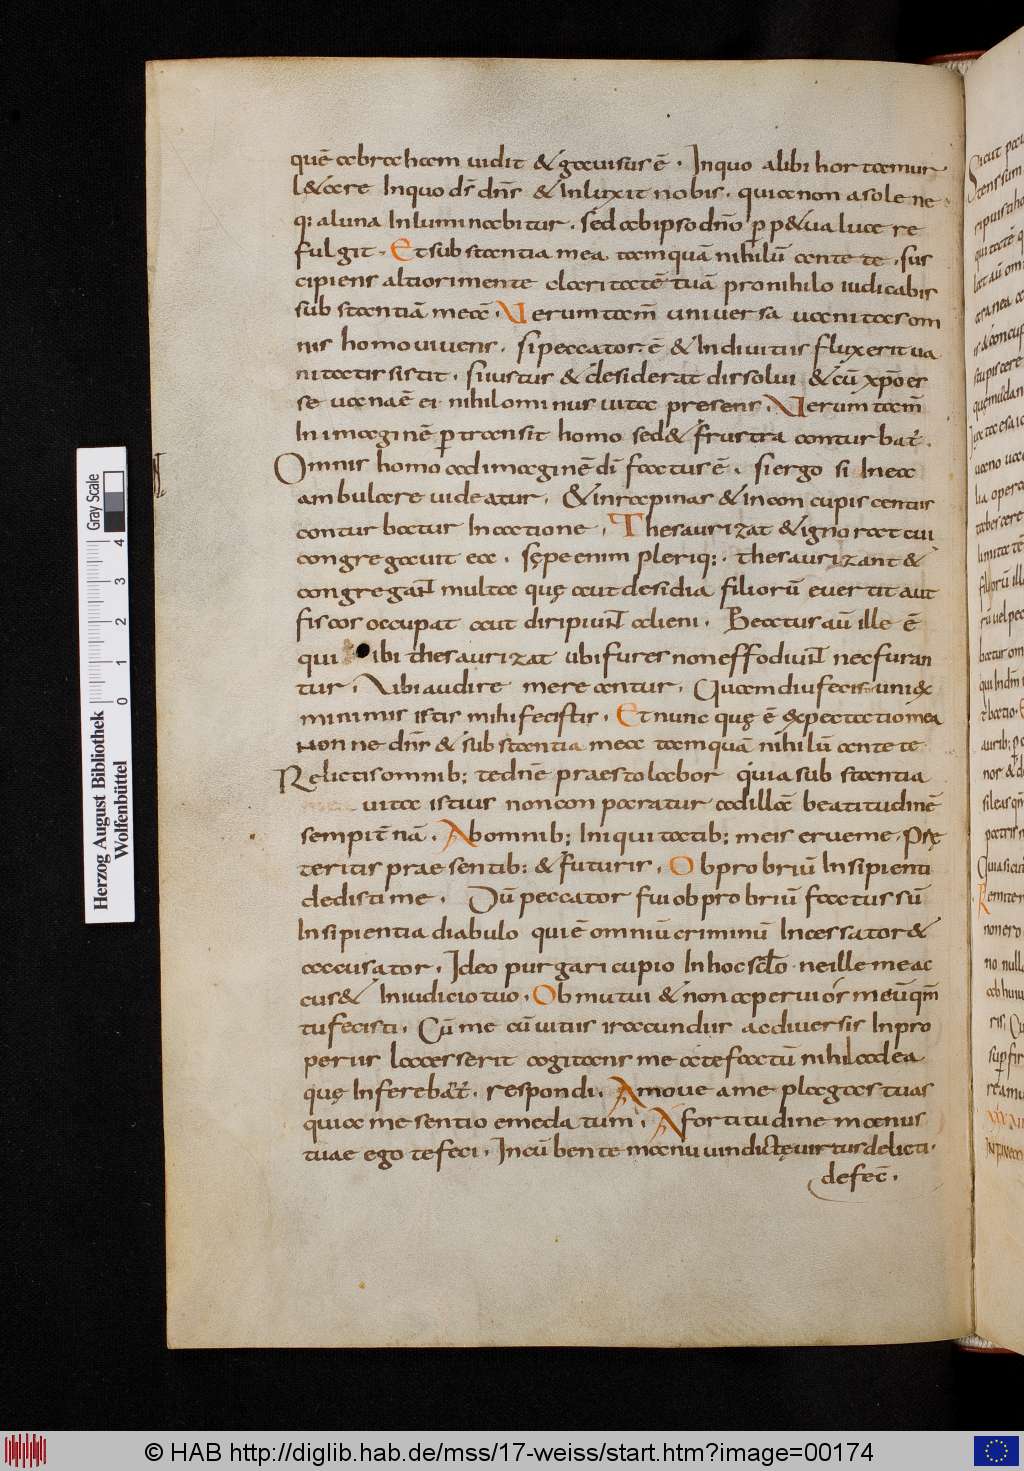 quē abraham uidit & gauisus ē. In quo alibi hortamur
l&are In quo ds̄ dn̄s & Inluxit nobis. quia non a sole ne
q: a luna Inluminabitur. sed ab ipso dn̄o p̱p&ua luce re
fulgit. Et substantia mea tamquā nihilū ante te. sus
cipiens altiori mente claritatē tuā pro nihilo iudicabis
substantiā meā. Uerumtam̄ uniuersa uanitas om
nis homo uiuens. si peccator ē & In diuitiis fluxerit ua
nitatis sistit. si iustus & desiderat dissolui & cū xp̄o es
se uanaē ei nihilominus uita presens. Uerumtam̄
In imaginē p̱transit homo sed & frustra conturbat̄.
Omnis homo ad imaginē dī factus ē. si ergo si In ea
ambulare uideatur. & in rapinas & in concupiscentiis
conturbatur In actione. Thesaurizat & ignorat cui
congregauit ea. sępe enim pleriq:. thesaurizant &
congregant multa quę aut desidia filiorū euertit aut
fiscos occupat aut diripiunt alieni. Beatus aū ille ē
qui ibi thesaurizat ubi fures non effodiunt nec furan
tur. Ubi audire mereantur. Quamdiu fecistis uni ex
minimis istis mihi fecistis. Et nunc quę ē expectatio mea
Nonne dn̄s & substantia mea tamquā nihilū ante te
Relictis omnib; te dn̄e praestolabor quia substantia
uitae istius non conparatur ad illā beatitudinē
sempit̄nā. Ab omnib; Iniquitatib; meis erue me. Prę
teritis praesentib: & futuris. Obprobriū Insipienti
dedisti me. Dū peccator fui obprobriū factus sū
Insipientia diabulo qui ē omniū criminū Incessator &
accusator. Ideo purgari cupio In hoc sc̄lo. ne ille me ac
cus& In iudicio tuo. Obmutui & non aperui os meū qm̄
tu fecisti. Cū me cū uitiis iracundus aduersis Inpro
periis lacesserit cogitans me a te factū nihil ad ea
quę Inferebat̄. respondi. Amoue a me plagas tuas
quia me sentio emedatum. A fortitudine manus
tuae ego te feci. In cūbente manu uindictę uirtus delicti.
defec̄.
Herzog August Bibliothek
Wolfenbüttel
Gray Scale
0 1 2 3 4
© HAB http://diglib.hab.de/mss/17-weiss/start.htm?image=00174